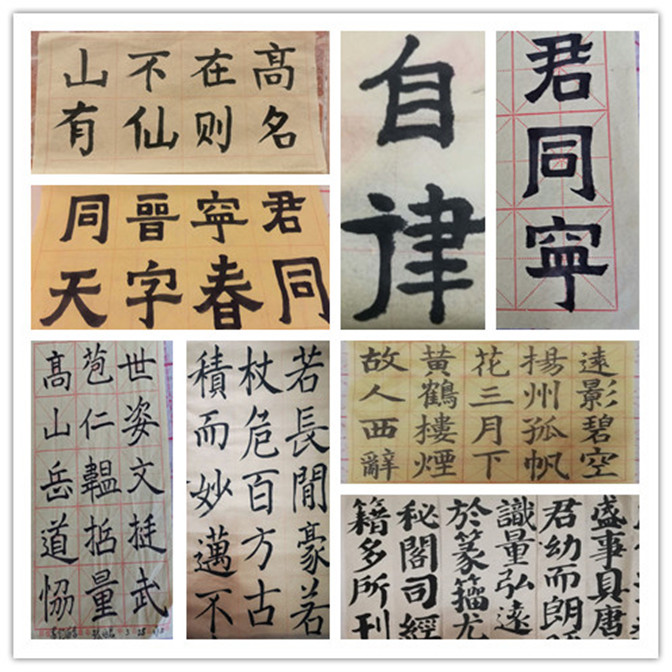 山不在高
有仙则名
自律
君同寧
君同
寧春
晉字
同天
世姿文挺武
苞仁韞括量
高山岳道恊
若長閒豪若
杖危百方古
積而妙邁不
故人西辭
黃鶴樓煙
花三月下
揚州孤帆
遠影碧空
盛事具唐
君幼而朗
識量弘遠
於篆籀尤
秘閣司經
籍多所刊